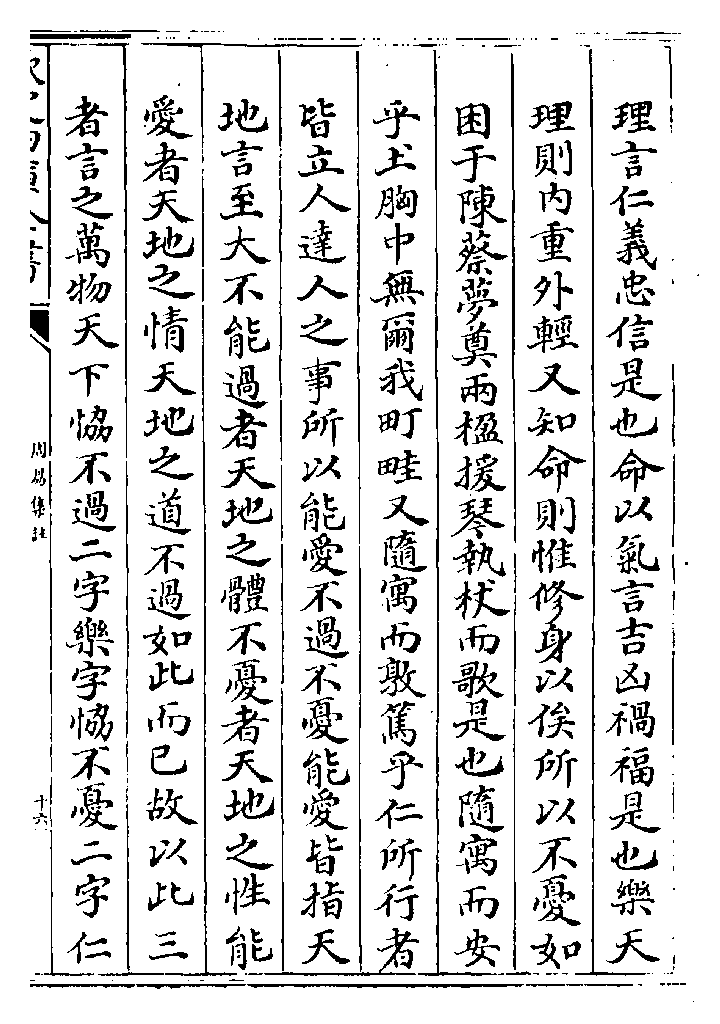 理言仁義忠信是也命以氣言吉凶禍福是也樂天
理則內重外輕又知命則惟修身以俟所以不憂如
困于陳蔡夢奠兩楹援琴執杖而歌是也隨寓而安
乎土胸中無爾我町畦又隨寓而敦篤乎仁所行者
皆立人達人之事所以能愛不過不憂能愛皆指天
地言至大不能過者天地之體不憂者天地之性能
愛者天地之情天地之道不過如此而已故以此三
者言之萬物天下恊不過二字樂字恊不憂二字仁
周易集註
十六